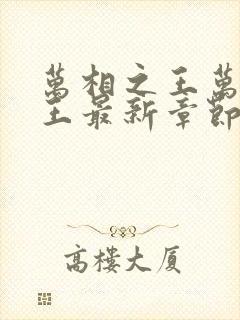 萬相之王萬
王最新章節
高樓大厦